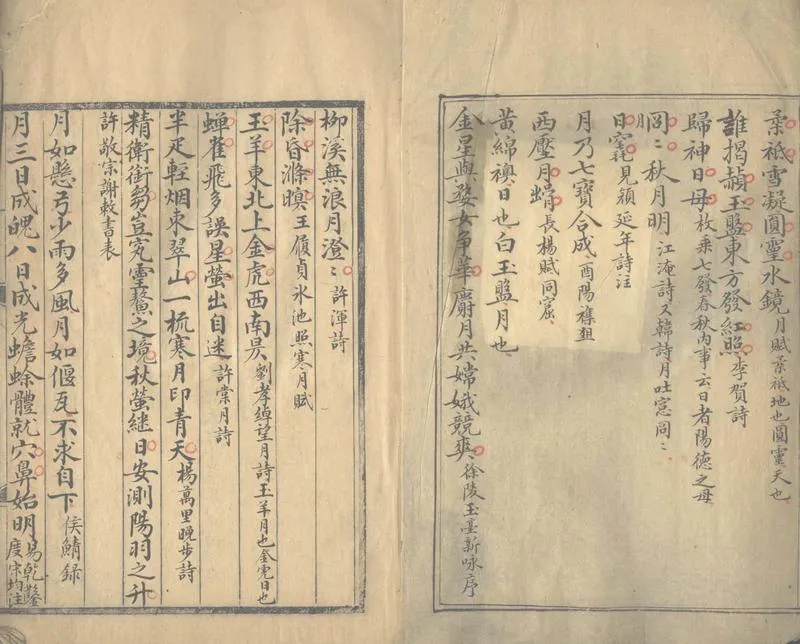 柔祇雪凝圓靈水鏡月賦柔祇地也圓靈天也
誰揭赬玉盤東方發紅照李賀詩
歸神日母枚乘七發春秋內事云日者陽德之母
冏〻秋月明江淹詩又韓詩月吐窓冏〻
日窀見顏延年詩注
月乃七寶合成酉陽襍俎
西壓月𧐢長楊賦同窟
黃綿襖日也白玉盤月也
金星與婺女爭華麝月共嫦娥競爽徐陵玉臺新詠序
柳溪無浪月澄〻許渾詩
除昏滌暝王履貞氷池照寒月賦
玉羊東北上金虎西南昃劉孝綽望月詩玉羊月也金虎日也
蟬雀飛多誤星螢出自迷許棠月詩
半疋輕烟束翠山一梳寒月印青天楊萬里晚步詩
精衛銜芻豈究靈鼇之境秋螢継日安測陽羽之升
許敬宗謝敕書表
月如懸弓少雨多風月如偃瓦不求自下侯鯖録
月三日成魄八日成光蟾蜍體就穴鼻始明易乾鑿度宋均注